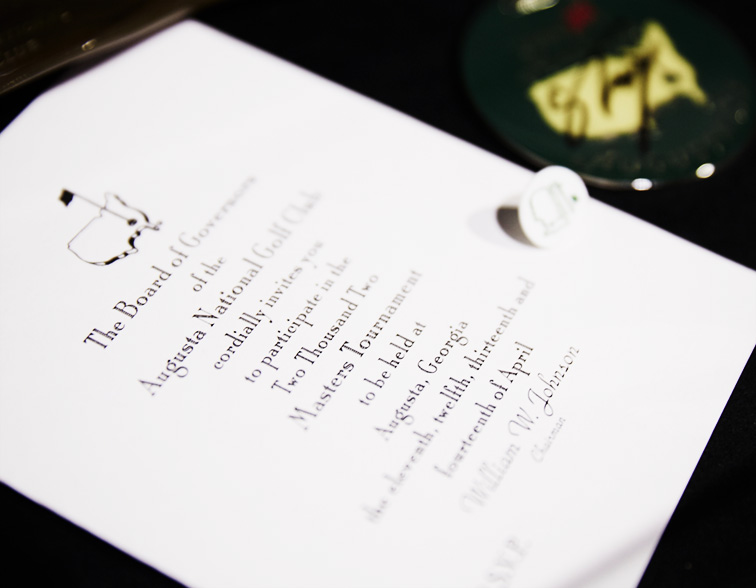 The Board of Governors
of the
Augusta National Golf Club
cordially invites you
to participate in the
Two Thousand Two
Masters Tournament
to be held at
Augusta, Georgia
the eleventh, twelfth, thirteenth and
fourteenth of April
William W. Johnson
Chairman